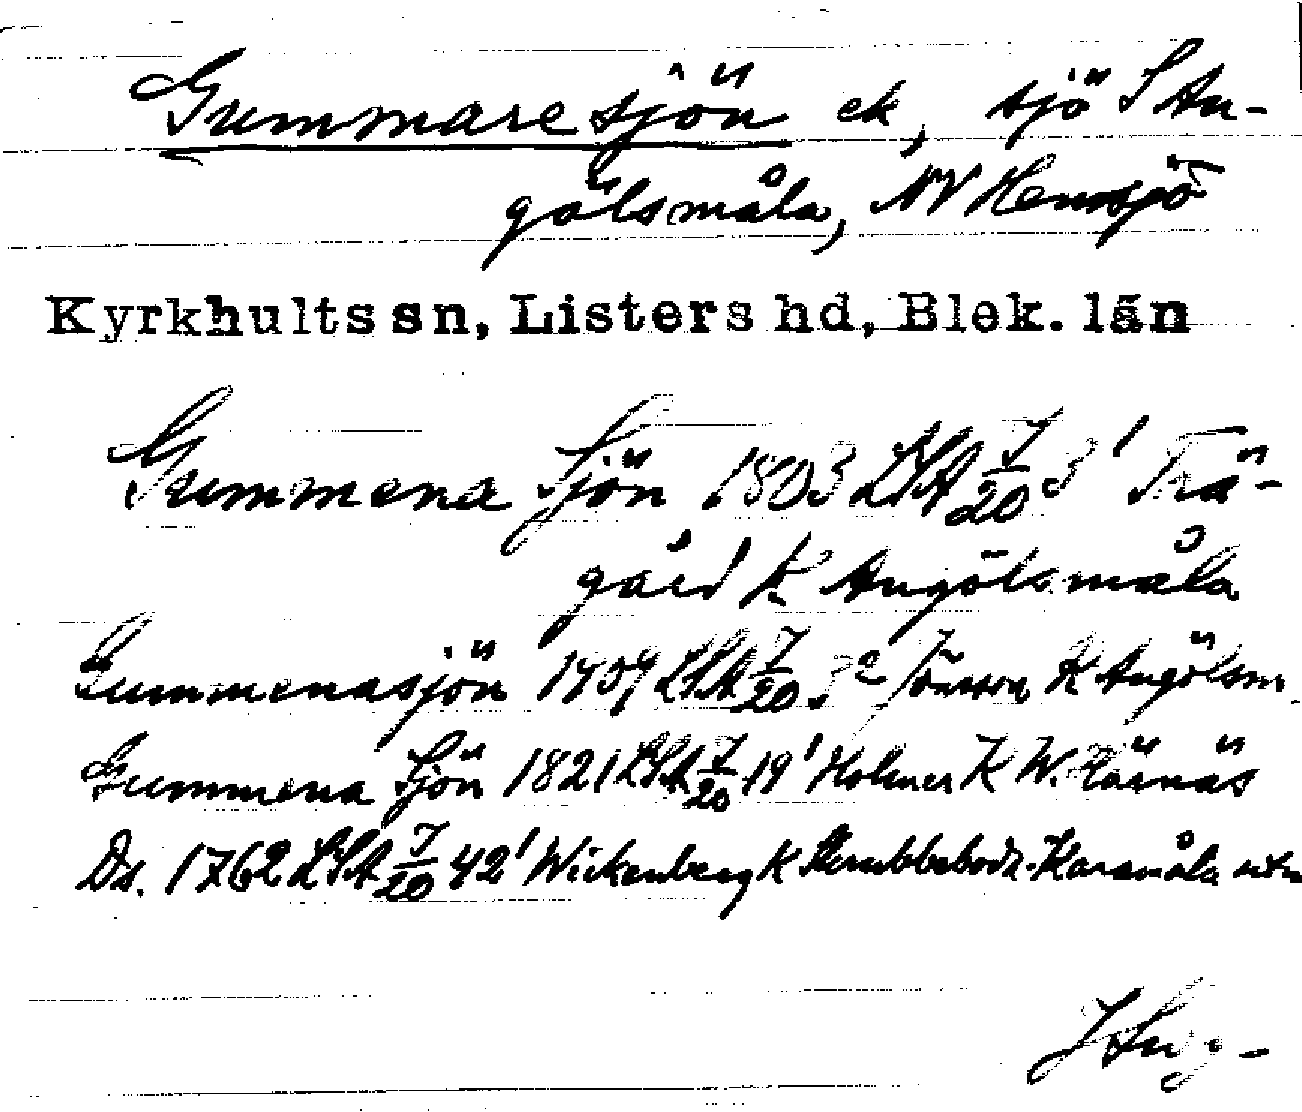 Gummaresjön ek, sjö S An-
gölsmåla, NV Hemsjö
Kyrkhults sn, Listers hd, Blek. län
Gummena Sjön 1803 LSA J/20 3¹ Trä-
gård K Angölsmåla
Gummenasjön 1709 LSA J/20 3² Jönsson K Angölsm.
Gummena Sjön 1821 LSA J/20 19¹ Holmer K W. Rärnäs
Ds. 1762 LSA J/20 42¹ Wickenberg K